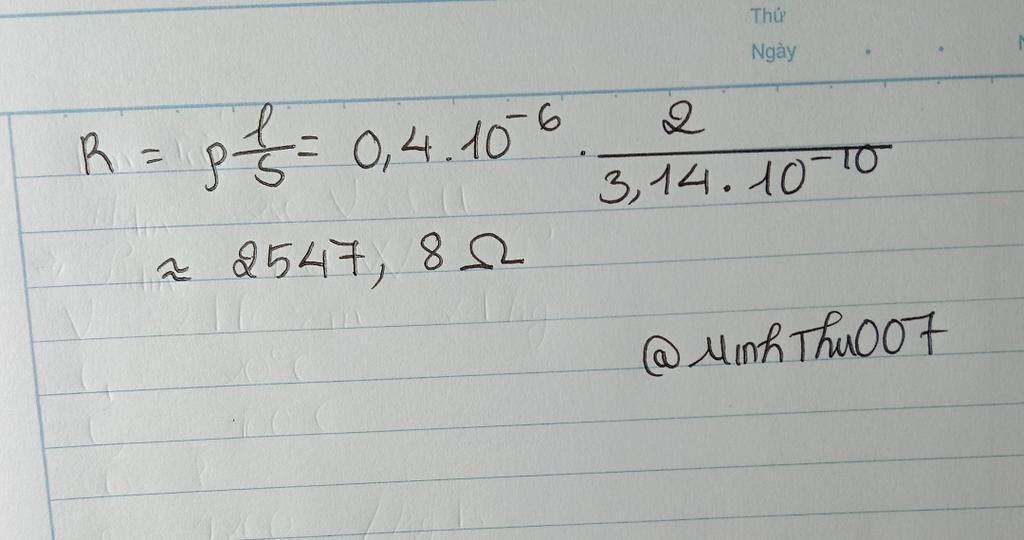 Thứ
Ngày
R = ρ l/S = 0,4.10⁻⁶ . 2/3,14.10⁻¹⁰
≈ 2547,8 Ω
@MinhThu007